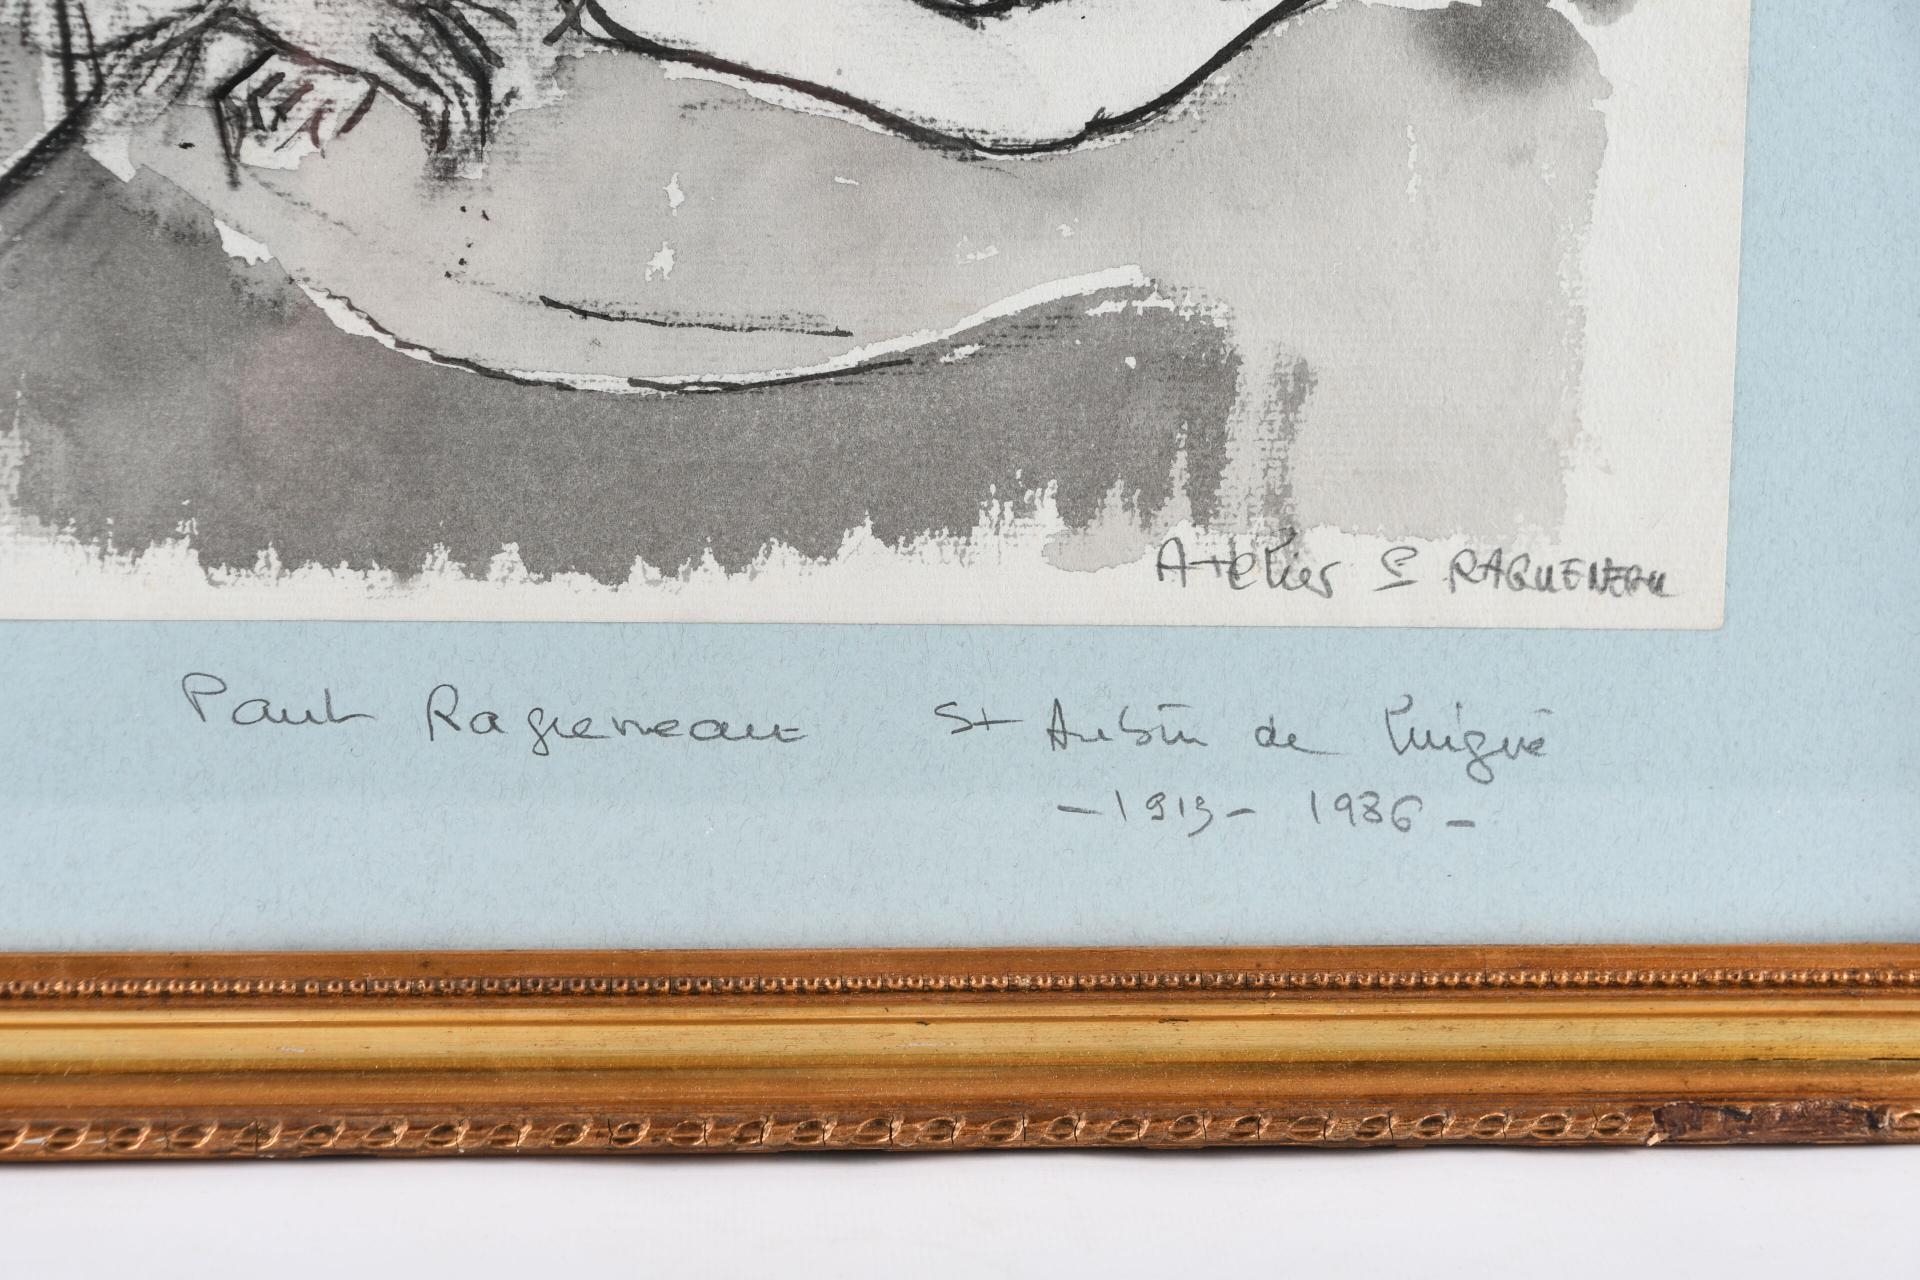 Atelier S RAGUENEAU
Paul Ragueneau St Aubin de Luigné
-1913- 1986-